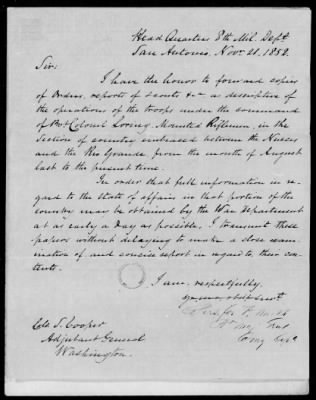 Head Quarters 8th Mil. Dept.
San Antonio, Nov. 20. 1852.
Sir:
I have the honor to forward copies
of Orders, reports of scouts &c a descriptive of
the operations of the troops under the command
of Bt Colonel Loring Mounted Riflemen in the
Section of country embraced between the Nueces
and the Rio Grande from the month of August
last to the present time.
In order that full information in re-
gard to the State of affairs in that portion of the
country may be obtained by the War Department
at as early a day as possible, I transmit these
papers without delaying to make a close exam-
ination of and concise report in regard to their con-
tents.
I am, respectfully,
your obdt Servt.
Persifor F. Smith
Comg
Col. S. Cooper
Adjutant General
Washington.